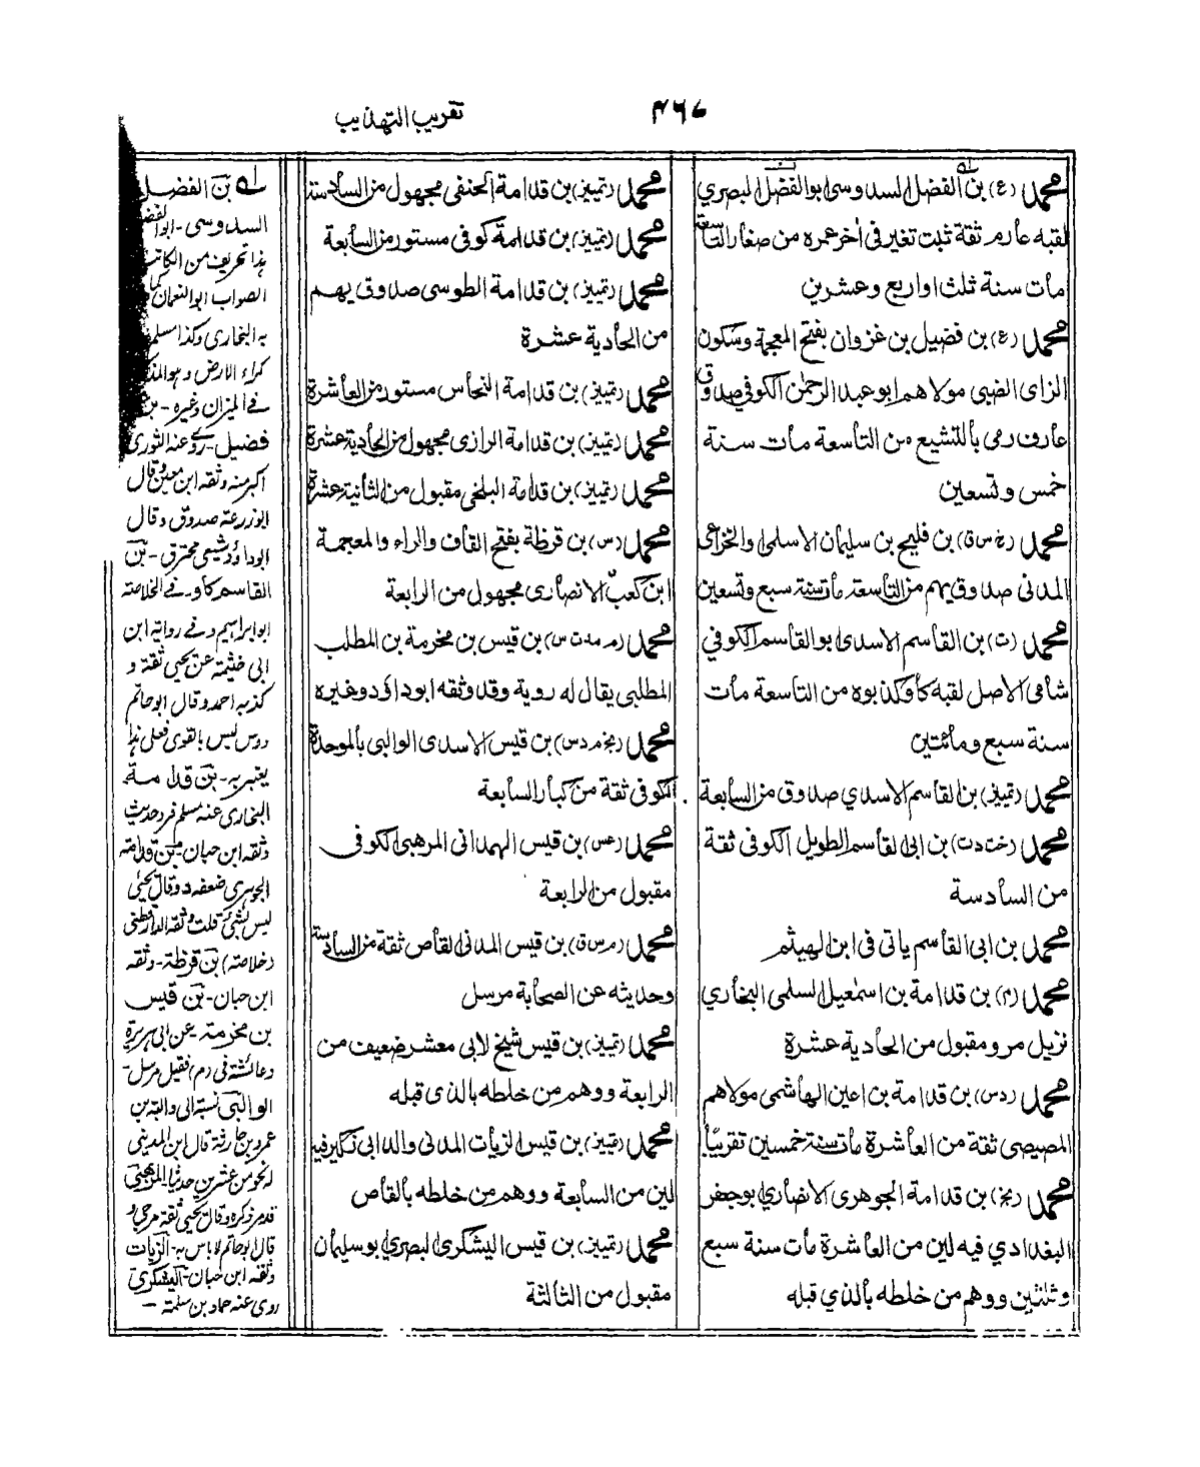 ٤٦٧
تقريب التهذيب
محمد (ع) بن الفضل السدوسى ابو الفضل البصري
لقبه عارم ثقة ثبت تغير فى اٰخر عمره من صغار التاسعة
مات سنة ثلث او اربع وعشرين
محمد (ع) بن فضيل بن غزوان بفتح المعجمة وسكون
الزاى الضبى مولاهم ابو عبد الرحمٰن الكوفي صدوق
عارف رمى بالتشيع من التاسعة مات سنة
خمس وتسعين
محمد (خ س ق) بن فليح بن سليمان الاسلمى والخزاعى
المدنى صدوق يهم من التاسعة مات سنة سبع وتسعين
محمد (ت) بن القاسم الاسدى ابو القاسم الكوفي
شامى الاصل لقبه كاو كذبوه من التاسعة مات
سنة سبع ومائتين
محمد (تمييز) بن القاسم الاسدي صدوق من السابعة
محمد (خت د ت) بن ابى القاسم الطويل الكوفى ثقة
من السادسة
محمد بن ابى القاسم ياتى فى ابن الهيثم
محمد (م) بن قدامة بن اسمٰعيل السلمى البخاري
نزيل مرو مقبول من الحادية عشرة
محمد (د س) بن قدامة بن اعين الهاشمى مولاهم
المصيصى ثقة من العاشرة مات سنة خمسين تقريبًا
محمد (بخ) بن قدامة الجوهرى الانصاري ابو جعفر
البغدادي فيه لين من العاشرة مات سنة سبع
وثلٰثين ووهم من خلطه بالذي قبله
محمد (تمييز) بن قدامة الحنفى مجهول من السادسة
محمد (تمييز) بن قدامة كوفى مستور من السابعة
محمد (تمييز) بن قدامة الطوسى صدوق يهم
من الحادية عشرة
محمد (تمييز) بن قدامة النحاس مستور من العاشرة
محمد (تمييز) بن قدامة الرازى مجهول من الحادية عشرة
محمد (تمييز) بن قدامة البلخى مقبول من الثانية عشرة
محمد (س) بن قرظة بفتح القاف والراء والمعجمة
ابن كعب الانصارى مجهول من الرابعة
محمد (م مد ت س) بن قيس بن مخرمة بن المطلب
المطلبى يقال له روية وقد وثقه ابو داؤد وغيره
محمد (بخ م د س) بن قيس الاسدى الوالبى بالموحدة
الكوفى ثقة من كبار السابعة
محمد (عس) بن قيس الهمدانى المرهبى الكوفى
مقبول من الرابعة
محمد (م س ق) بن قيس المدنى القاص ثقة من السادسة
وحديثه عن الصحابة مرسل
محمد (تمييز) بن قيس شيخ لابى معشر ضعيف من
الرابعة ووهم من خلطه بالذى قبله
محمد (تمييز) بن قيس الزيات المدنى والد ابى زكير فيه
لين من السابعة ووهم من خلطه بالقاص
محمد (تمييز) بن قيس اليشكرى البصري ابو سليمان
مقبول من الثالثة
بن الفضل
السدوسى - ابو الفضل
هذا تحريف من الكاتب
الصواب ابو النعمان كما
به البخارى وكذا مسلم
كراء الارض وهو المذكور
فے الميزان وغيره - بن
فضيل - روى عنه الثورى
اكبر منه وثقه ابن معين وقال
ابو زرعة صدوق وقال
ابو داؤد شيعى محترق - بن
القاسم كاو - فے الخلاصة
ابو ابراهيم وفے رواية ابن
ابى خثيمة عن يحيى ثقة و
كذبه احمد وقال ابو حاتم
ليس بالقوى فعلى هذا
يعتبر به - بن قدامة
البخارى عنه مسلم فرد حديث
وثقه ابن حبان - بن قدامة
الجوهرى ضعفه د وقال يحيى
ليس بشئ قلت وثقه الدارقطنى
(خلاصة) بن قرظة - وثقه
ابن حبان - بن قيس
بن مخرمة - عن ابى هريرة
وعائشة فى (م) فقيل مرسل -
الوالبى نسبة الى والبة بن
عمرو بن حارثة قال ابن المدينى
له نحو من عشرين حديثا المرهبى
قدمر ذكره وقال يحيى ثقة مرجى و
قال ابو حاتم لا باس به - الزيات
وثقه ابن حبان - اليشكرى
روى عنه حماد بن سلمة -